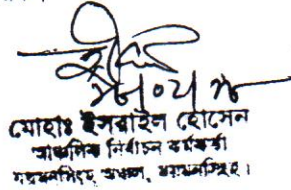 মোহাঃ ইসরাইল হোসেন
আঞ্চলিক নির্বাচন কর্মকর্তা
ময়মনসিংহ অঞ্চল, ময়মনসিংহ।